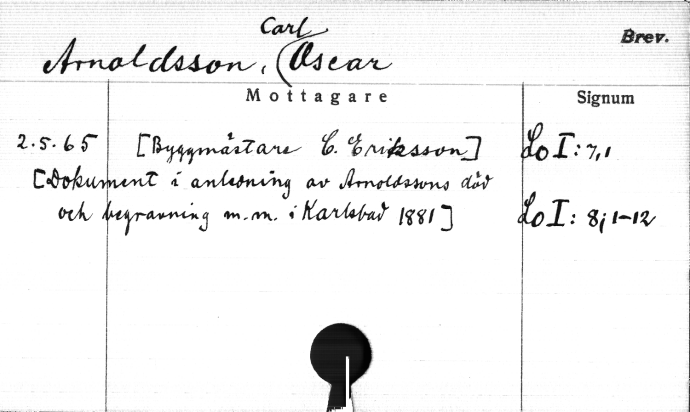 Carl
Brev.
Arnoldsson, (Oscar
Mottagare
Signum
2.5.65 [Byggmästare C. Eriksson] LoI: 7,1
[Dokument i anledning av Arnoldssons död
och begravning m.m. i Karlsbad 1881] LoI: 8; 1-12